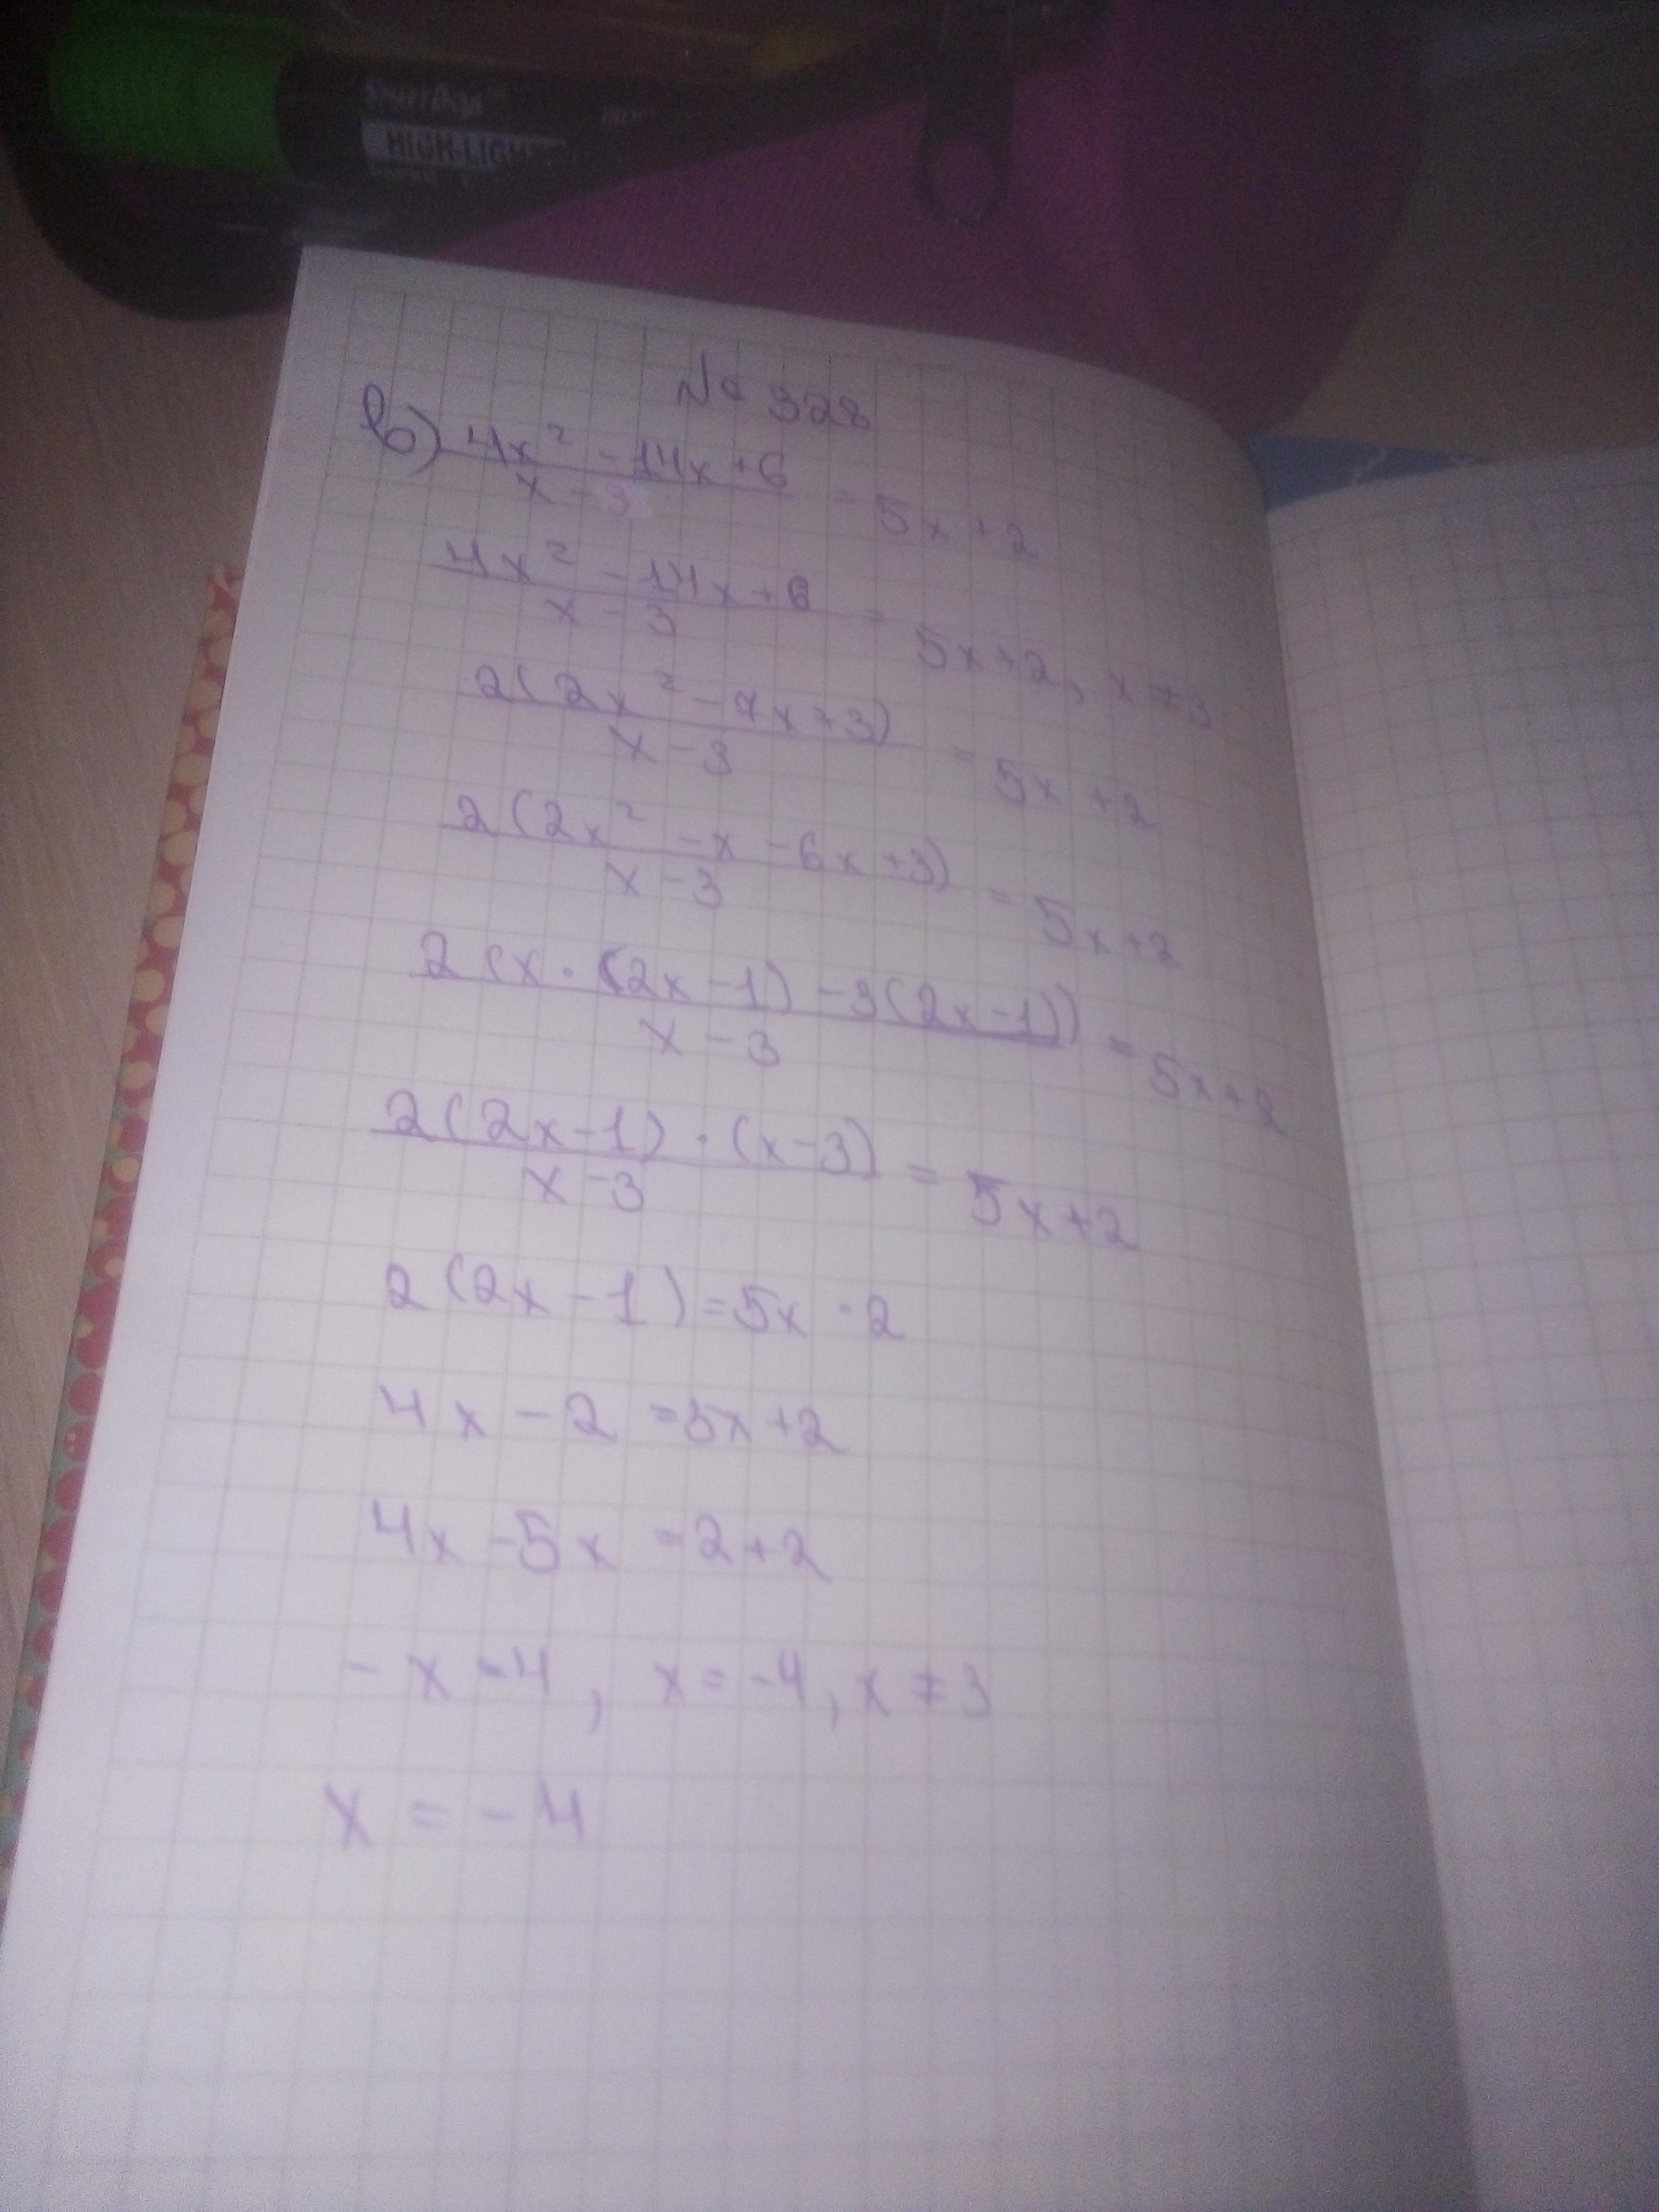 HIGH-LIGHT
№ 328
в) (4x² - 14x + 6)/(x - 3) = 5x + 2
(4x² - 14x + 6)/(x - 3) = 5x + 2, x ≠ 3
2(2x² - 7x + 3)/(x - 3) = 5x + 2
2(2x² - x - 6x + 3)/(x - 3) = 5x + 2
2(x · (2x - 1) - 3(2x - 1))/(x - 3) = 5x + 2
2(2x - 1) · (x - 3)/(x - 3) = 5x + 2
2(2x - 1) = 5x · 2
4x - 2 = 5x + 2
4x - 5x = 2 + 2
- x = 4, x = -4, x ≠ 3
x = - 4